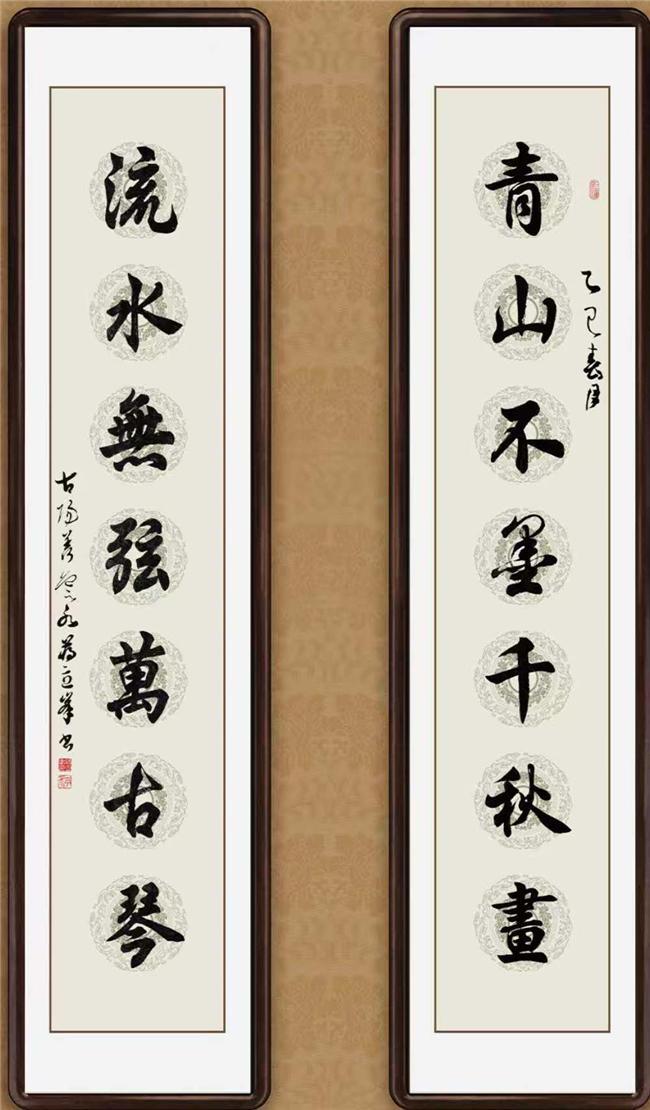 青山不墨千秋畫
乙巳春月
流水無弦萬古琴
古陽善 蔣立峯书